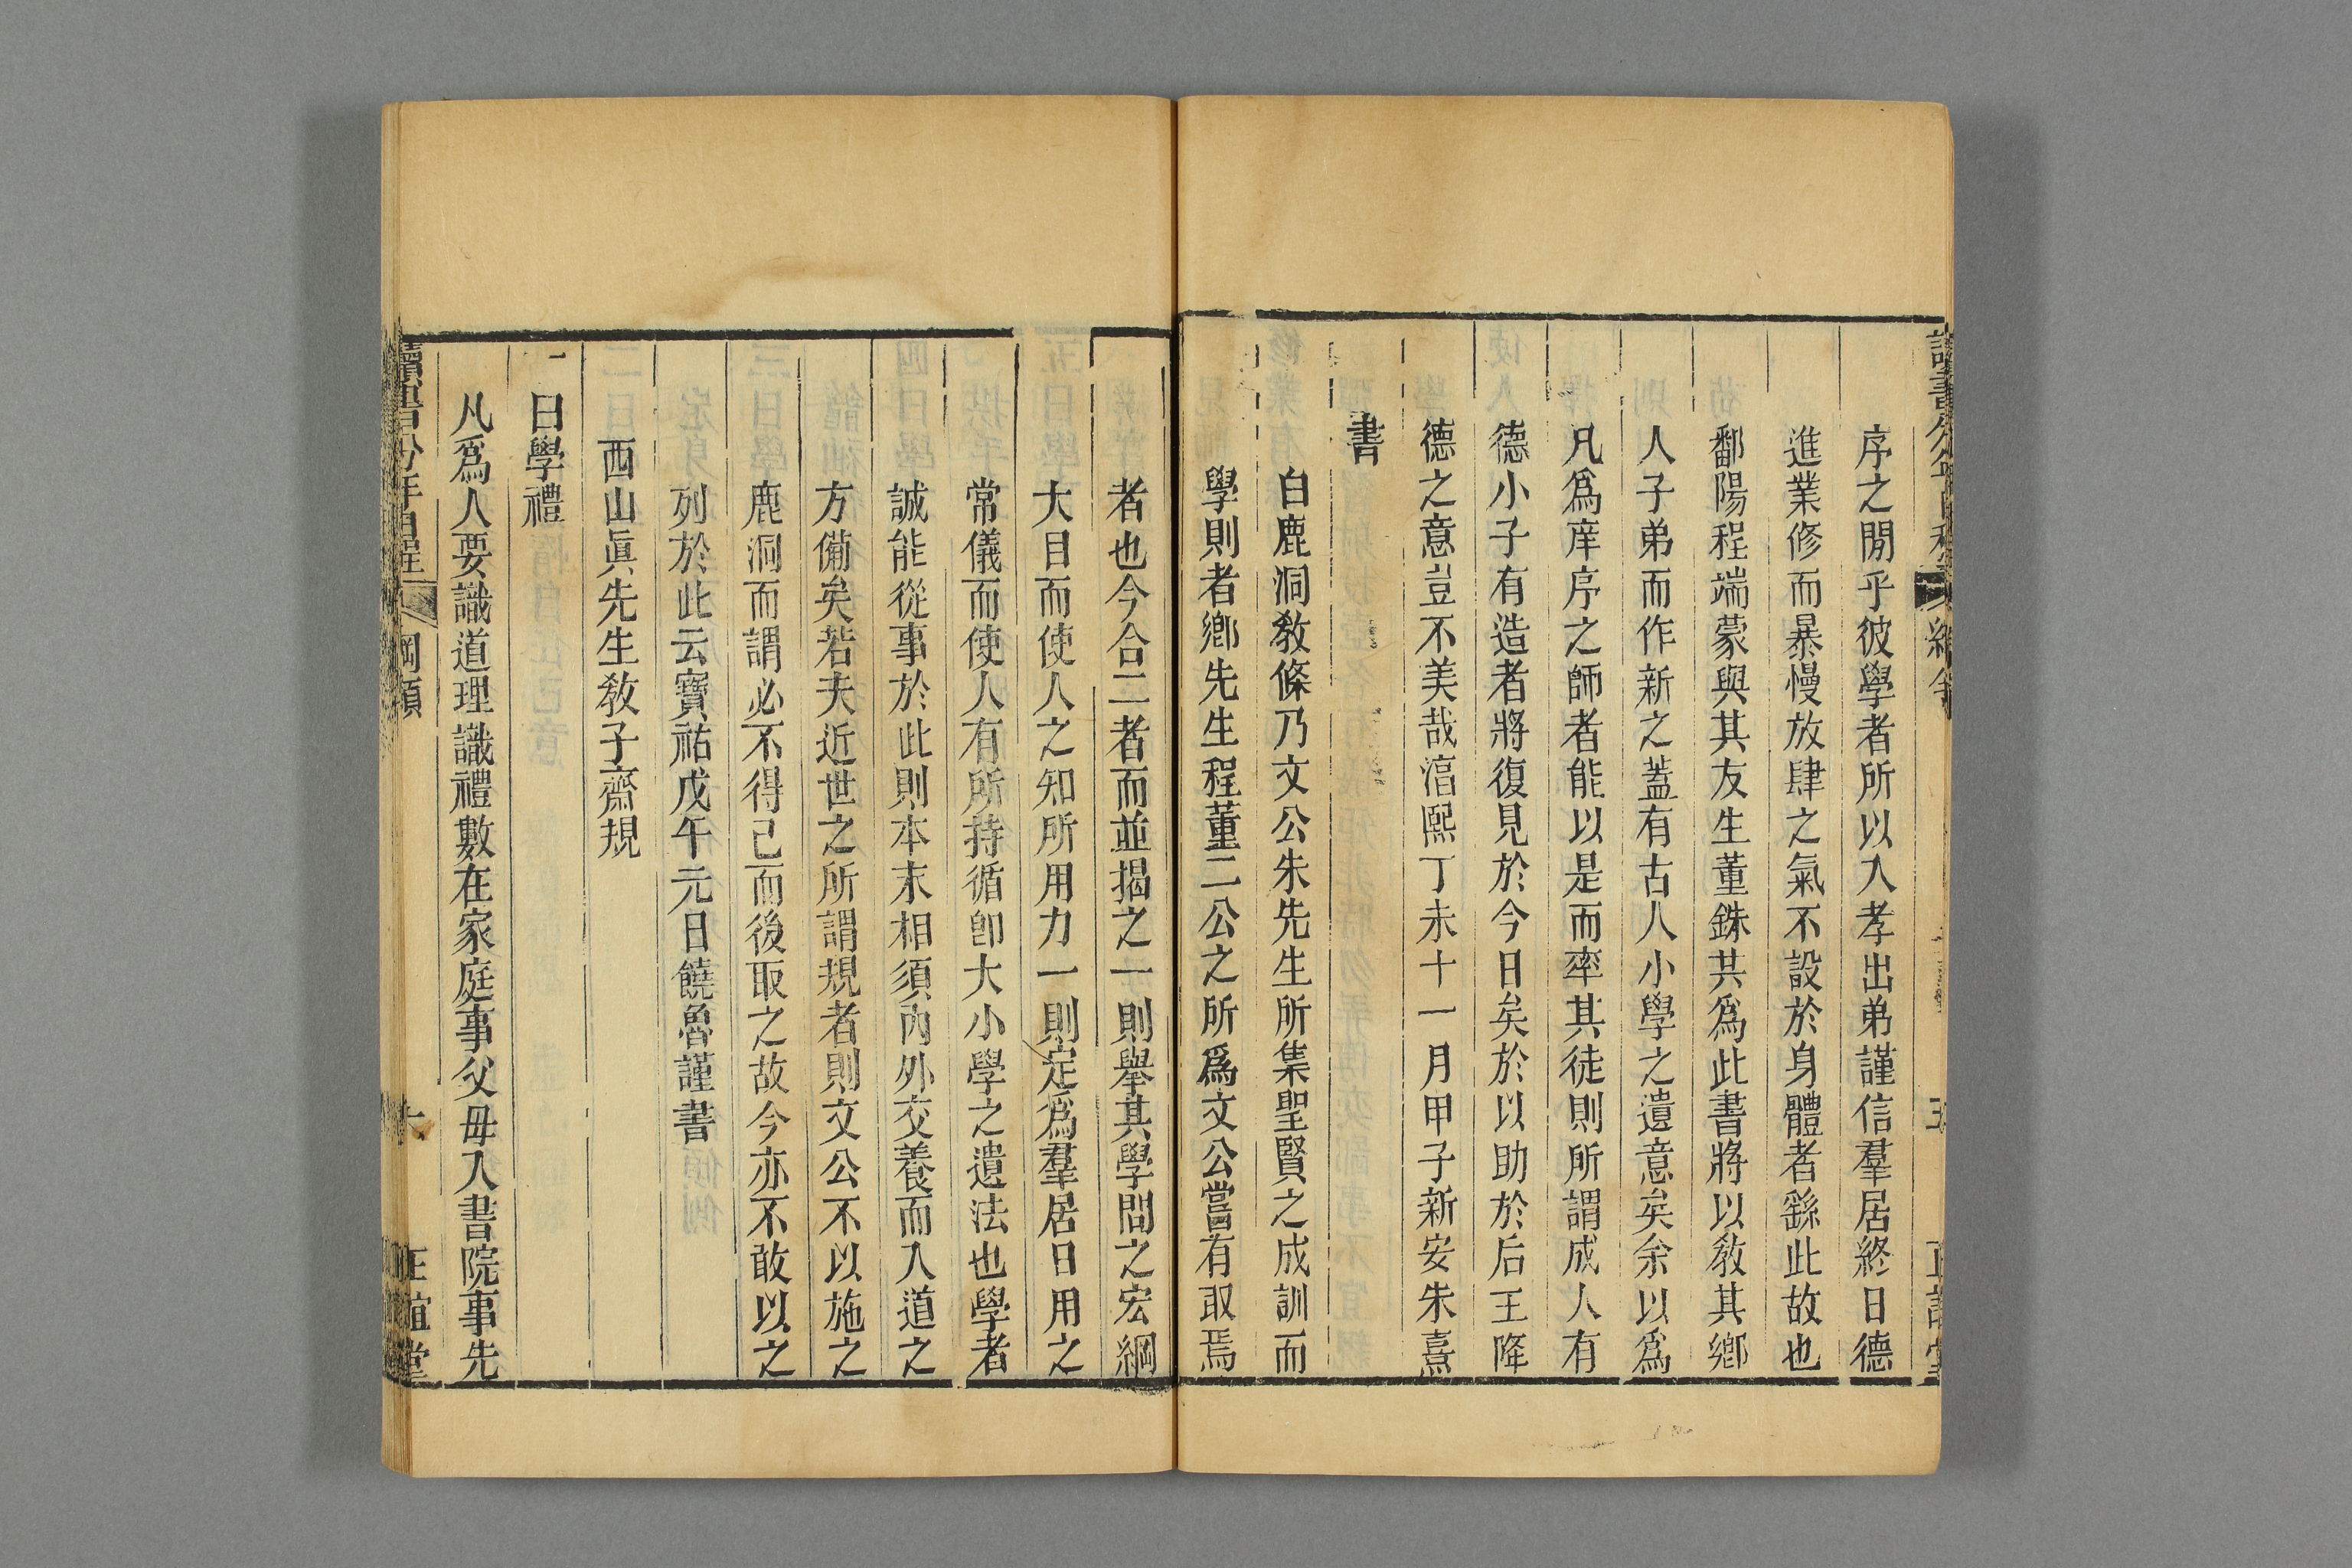 序之閒乎彼學者所以入孝出弟謹信羣居終日德
進業修而暴慢放肆之氣不設於身體者繇此故也
鄱陽程端蒙與其友生董銖共爲此書將以敎其鄉
人子弟而作新之蓋有古人小學之遺意矣余以爲
凡爲庠序之師者能以是而率其徒則所謂成人有
德小子有造者將復見於今日矣於以助於后王降
德之意豈不美哉湻熙丁未十一月甲子新安朱熹
書
白鹿洞敎條乃文公朱先生所集聖賢之成訓而
學則者鄉先生程董二公之所爲文公嘗有取焉
者也今合二者而並揭之一則舉其學問之宏綱
大目而使人之知所用力一則定爲羣居日用之
常儀而使人有所持循卽大小學之遺法也學者
誠能從事於此則本末相須內外交養而入道之
方備矣若夫近世之所謂規者則文公不以施之
鹿洞而謂必不得已而後取之故今亦不敢以之
列於此云寶祐戊午元日饒魯謹書
西山眞先生敎子齋規
一曰學禮
凡爲人要識道理識禮數在家庭事父母入書院事先
讀書分年日程 綱領 六 正誼堂